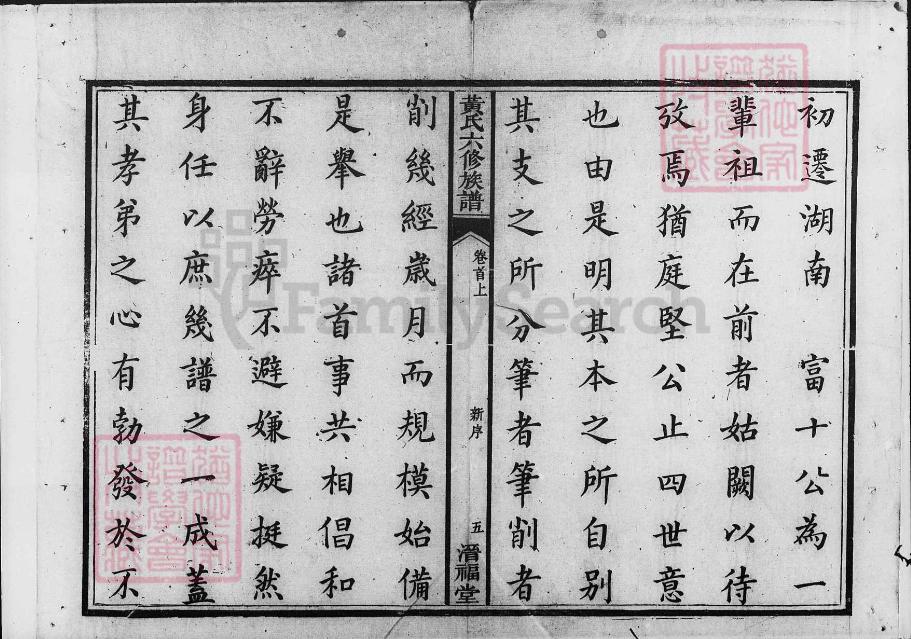 初遷湖南　富十公為一
輩祖而在前者姑闕以待
攷焉猶庭堅公止四世意
也由是明其本之所自别
其支之所分筆者筆削者
黃氏六修族譜
卷首上
新序
五
濳福堂
削幾經歲月而規模始備
是舉也諸首事共相倡和
不辭勞瘁不避嫌疑挺然
身任以庶幾譜之一成蓋
其孝弟之心有勃發於不
FamilySearch